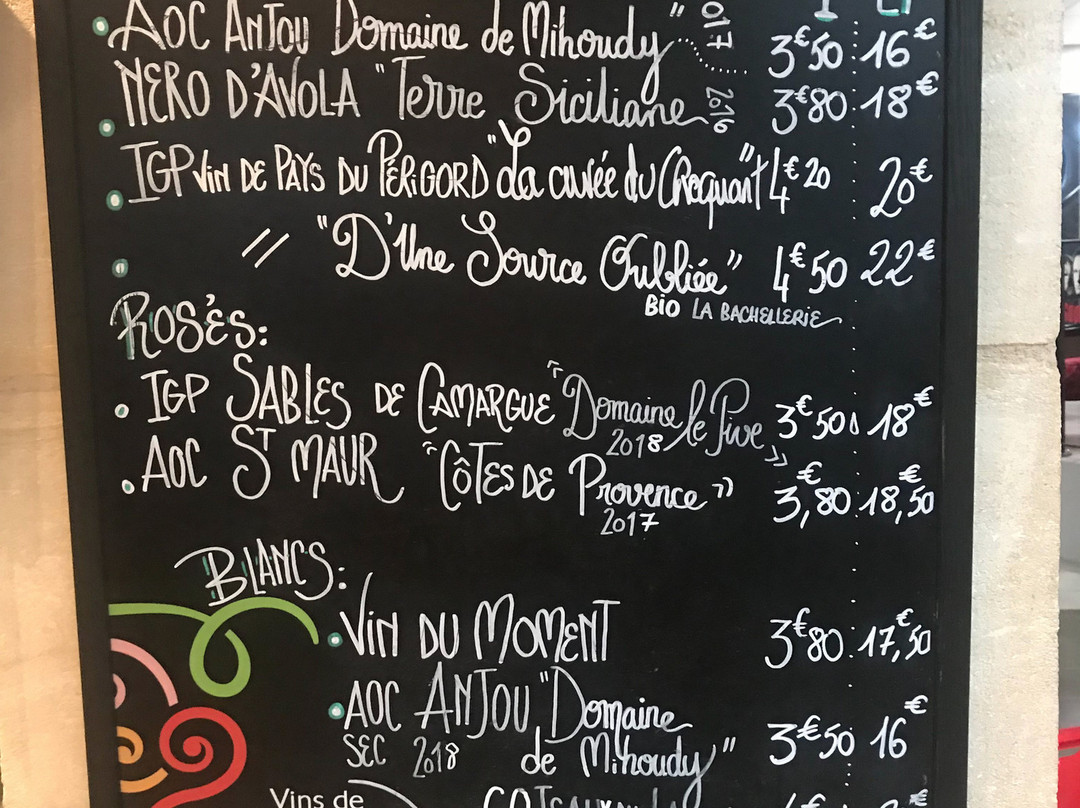 AOC ANJOU Domaine de Mihoudy" 2017 3€50 16€
NERO D'AVOLA "Terre Siciliane 2016 3€80 18€
IGP VIN DE PAYS DU PÉRIGORD "La cuvée du Croquant" 4€20 20€
// "D'Une Source Oubliée" 4€50 22€
BIO LA BACHELLERIE
ROSÉS:
IGP SABLES DE CAMARGUE «Domaine le Pive» 3€50 18€
2018
AOC ST MAUR "CÔTES DE Provence" 3,80€ 18,50€
2017
BLANCS:
VIN DU MOMENT 3€80 17,€50
AOC ANJOU "Domaine
SEC 2018 de Mihoudy" 3€50 16€
Vins de